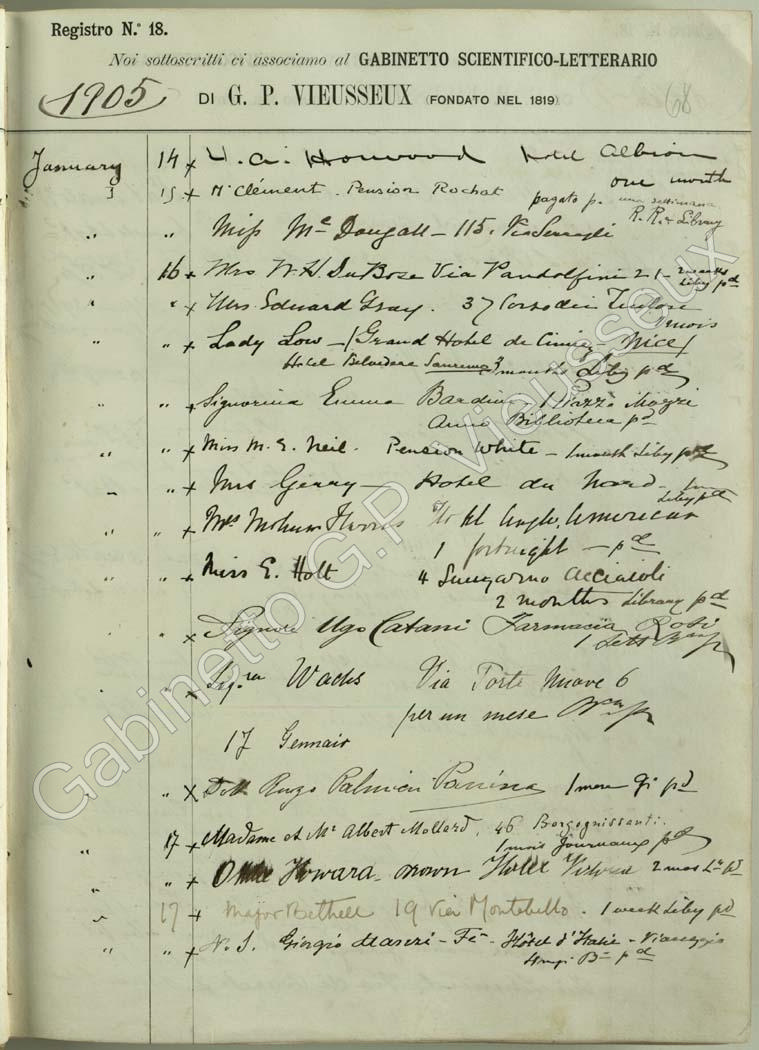 Registro N.º 18.
Noi sottoscritti ci associamo al GABINETTO SCIENTIFICO-LETTERARIO
1905 DI G. P. VIEUSSEUX (FONDATO NEL 1819) 68
January 14 x Hotel Albion
one month
15 x Mr Clément. Pension Rochat pagato p. una settimana
R. R. & Library
" " Miss Mc Dougall - 115, Via Serragli
" 16 x Mrs W. H. DuBose Via Pandolfini 21 - 2 months
Liby pd
" " x Mrs Edward Gray. 37
" " x Lady Low - (Grand Hotel de Cimiez - Nice)
Hotel Belvedere Sanremo 3 months Liby pd
" x Signorina Emma Bardini 1 Piazza Mozzi
Anno Biblioteca pd
" " x Miss M. E. Neil. Pension White - 1 month Liby pd
" " x Mrs Hotel du Nord -
Liby pd
" " x Mrs Hotel Anglo American
1 fortnight - pd
" " x Miss E. Holt 4 Lungarno Acciaioli
2 months Library pd
" x Signor Ugo Catani Farmacia
1
" x Sigra Wachs Via 6
per un mese
17 Gennaio
" x 1 mese pd
" 17 x Madame et Mr Albert Mollard, 46 Borgognissanti.
1 mois Journaux pd
" " x Howard Hotel 2 mos pd
" 17 x Major Bethell 19 Via Montebello. 1 week Liby pd
" " x N. S. Giorgio - Hôtel d'Italie - Viareggio
4 pd
Gabinetto G.P. Vieusseux